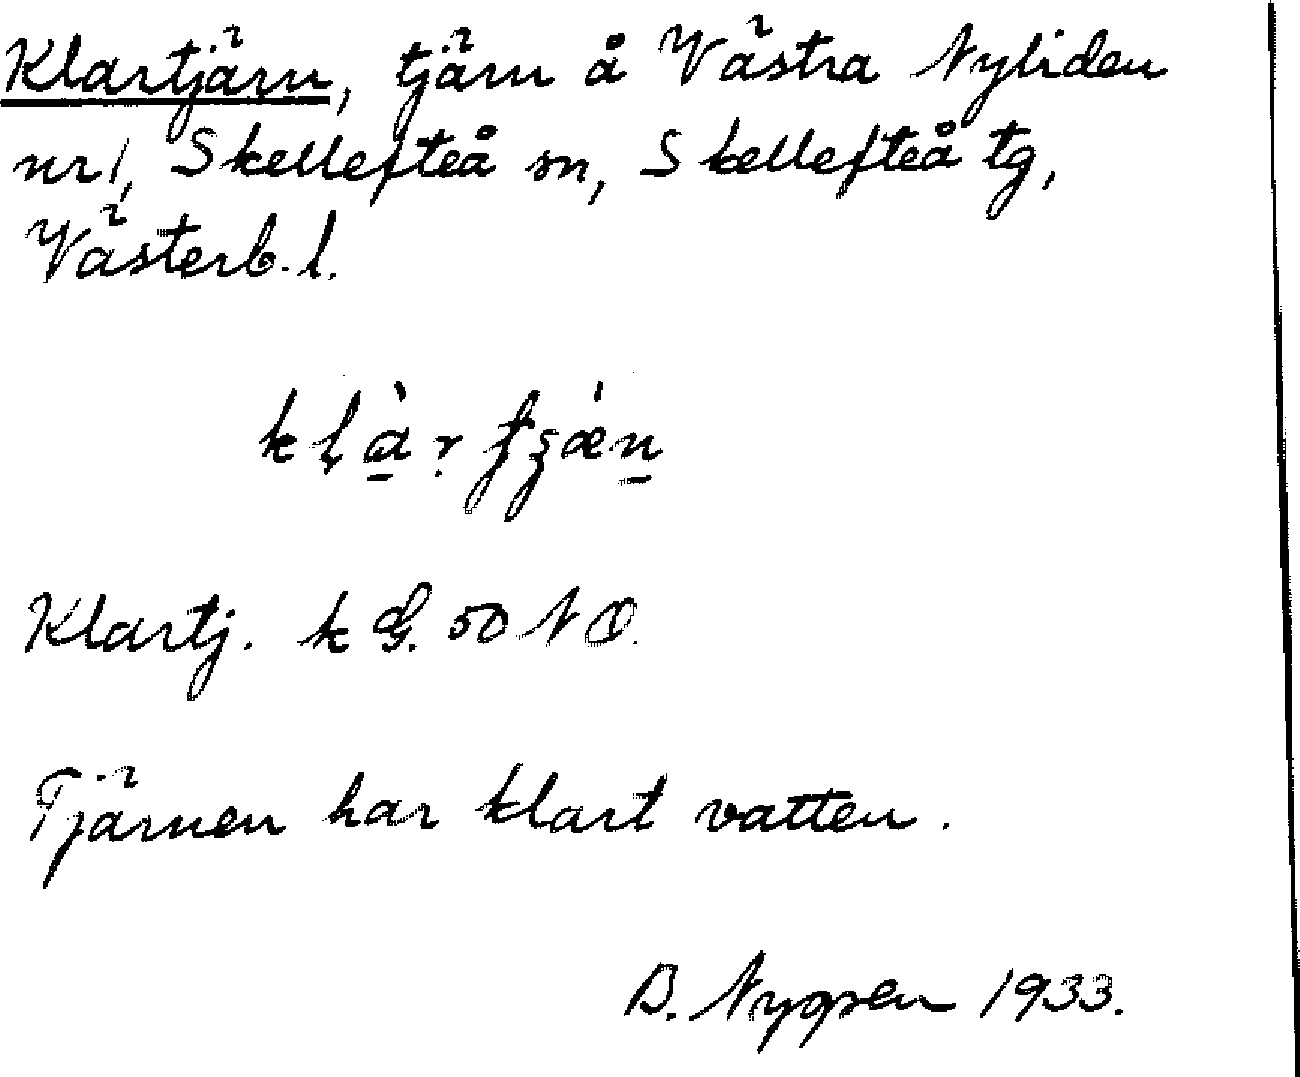 Klartjärn, tjärn å Västra Nyliden
nr 1, Skellefteå sn, Skellefteå tg,
Västerb. l.
Klartj. k G. 50 NO.
Tjärnen har klart vatten.
B. 1933.